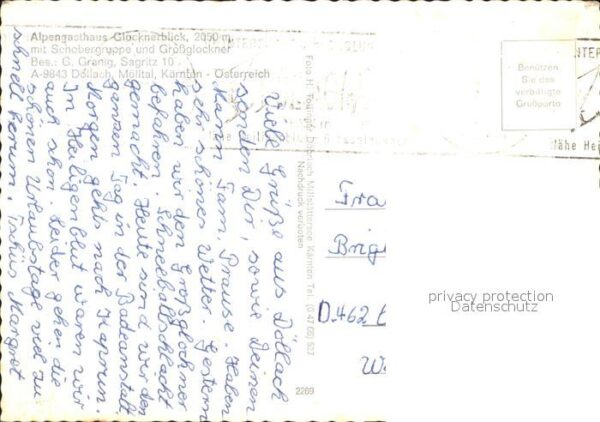 Alpengasthaus Glocknerblick, 2050 m,
mit Schobergruppe und Großglockner
Bes.: G. Granig, Sagritz 10
A-9843 Döllach, Mölltal, Kärnten - Österreich
Benützen
Sie das
verbilligte
Grußporto
Viele Grüße aus Döllach
senden Dir, sowie Deinen
Mann, Fam. Prause. Haben
sehr schönes Wetter. Gestern
haben wir den Großglockner
befahren. Schneeballschlacht
gemacht. Heute sind wir den
ganzen Tag in der Badeanstalt.
Morgen gehts nach Kaprun.
In Heiligenblut waren wir
auch schon. Leider gehen die
schönen Urlaubstage viel zu
schnell herum. Tschüs Margot
Döbriach Millstättersee Kärnten Tel.
Nachdruck verboten
2269
Fra
Brig
D.462
W
privacy protection
Datenschutz